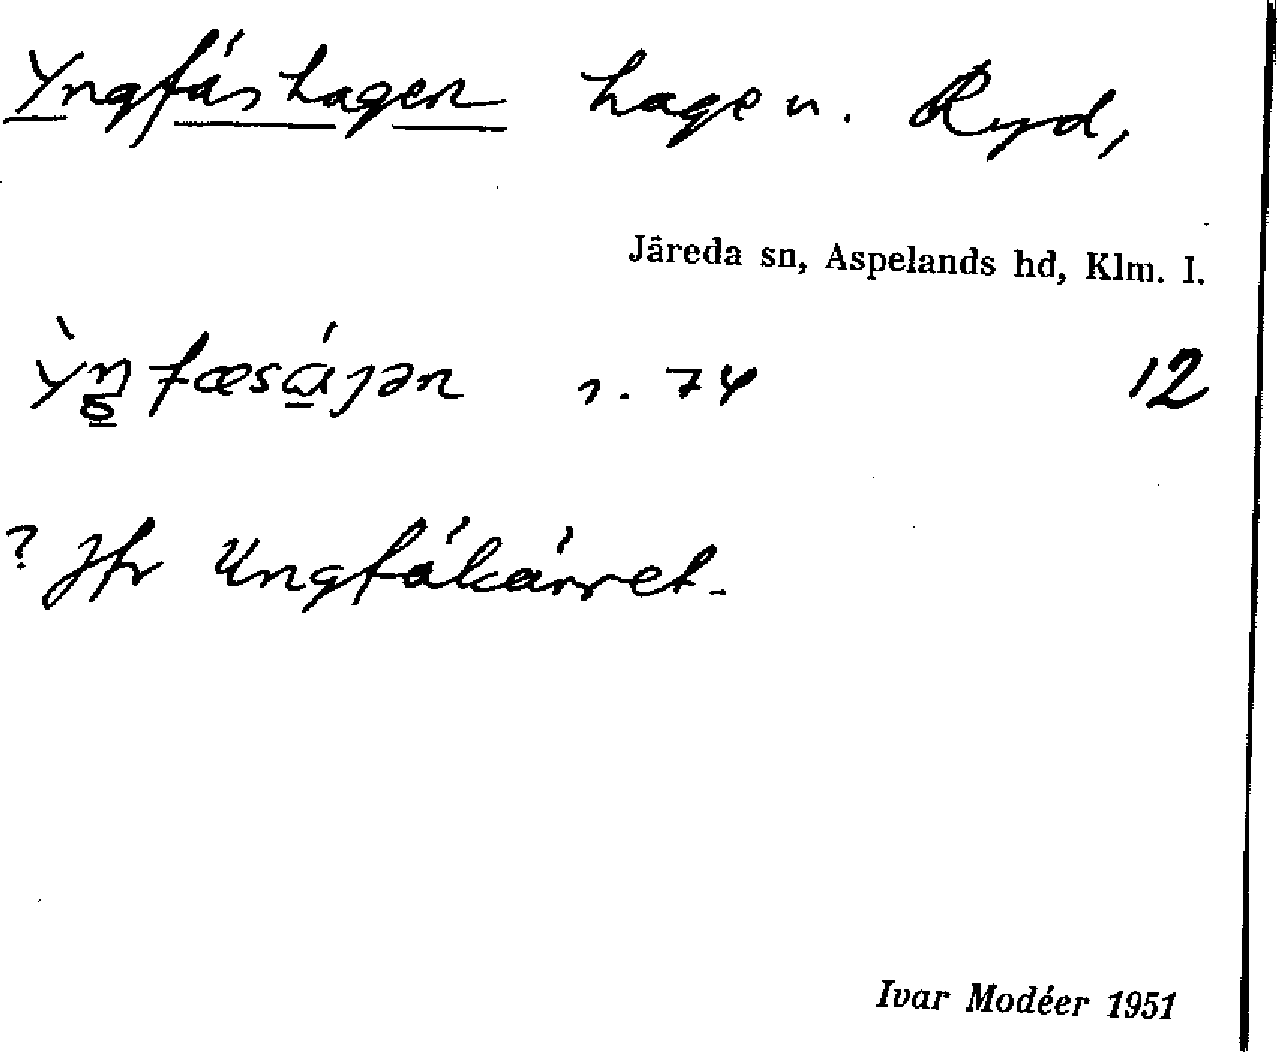 Yngfäshagen hage n. Ryd,
Järeda sn, Aspelands hd, Klm. l.
s. 74 12
? Jfr Ungfäkärret.
Ivar Modéer 1951